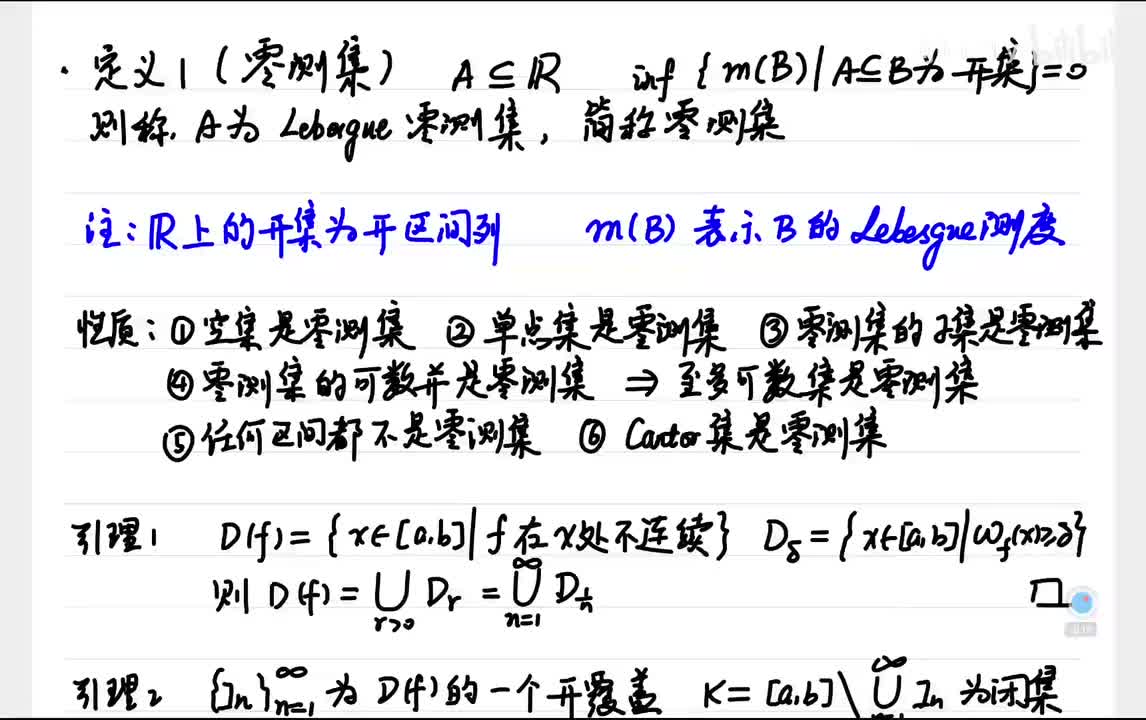 · 定义1 (零测集) A⊆ℝ inf {m(B)|A⊆B为开集}=0
则称 A为 Lebesgue 零测集, 简称零测集
注: ℝ上的开集为开区间列 m(B) 表示 B 的 Lebesgue测度
性质: ①空集是零测集 ②单点集是零测集 ③零测集的子集是零测集
④零测集的可数并是零测集 ⇒ 至多可数集是零测集
⑤任何区间都不是零测集 ⑥ Cantor集是零测集
引理1 D(f)={x∈[a,b]|f在x处不连续} D_δ={x∈[a,b]|ω_f(x)≥δ}
则 D(f)=⋃_{r>0} D_r=⋃_{n=1}^∞ D_{1/n} □
引理2 {I_n}_{n=1}^∞ 为 D(f)的一个开覆盖 K=[a,b]\⋃^∞ I_n 为闭集
bilibili